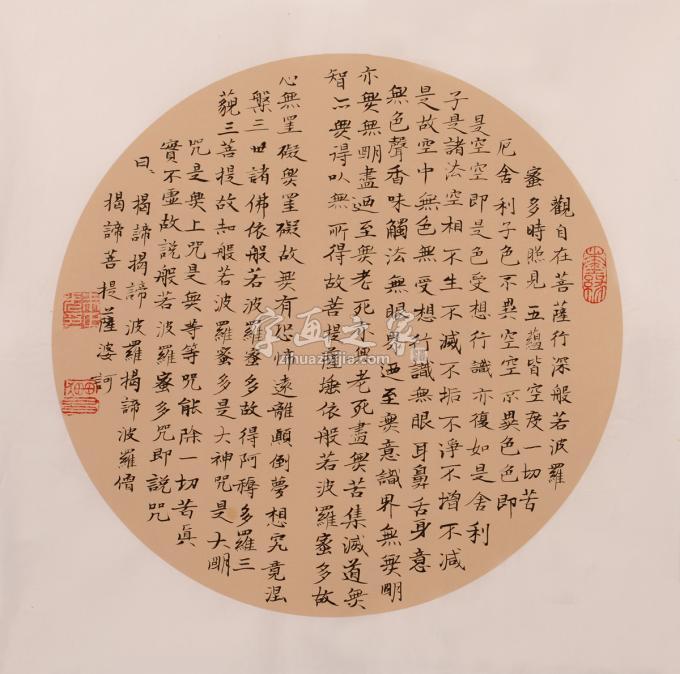 觀自在菩薩行深般若波羅
蜜多時照見五蘊皆空度一切苦
厄舍利子色不異空空不異色色即
是空空即是色受想行識亦復如是舍利
子是諸法空相不生不滅不垢不淨不增不減
是故空中無色無受想行識無眼耳鼻舌身意
無色聲香味觸法無眼界迺至無意識界無無明
亦無無明盡迺至無老死亦無老死盡無苦集滅道無
智亦無得以無所得故菩提薩埵依般若波羅蜜多故
心無罣礙無罣礙故無有恐怖遠離顛倒夢想究竟涅
槃三世諸佛依般若波羅蜜多故得阿耨多羅三
藐三菩提故知般若波羅蜜多是大神咒是大明
咒是無上咒是無等等咒能除一切苦真
實不虛故說般若波羅蜜多咒即說咒
曰、揭諦揭諦波羅揭諦波羅僧
揭諦菩提薩婆訶
墨緣
字画之家
zihuazhijia.com